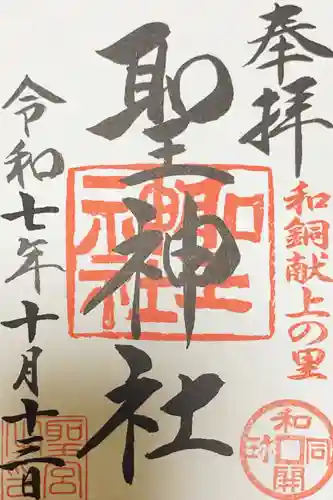 奉拝
和銅献上の里
聖神社
令和七年十月十三日
聖神社
和同開珎